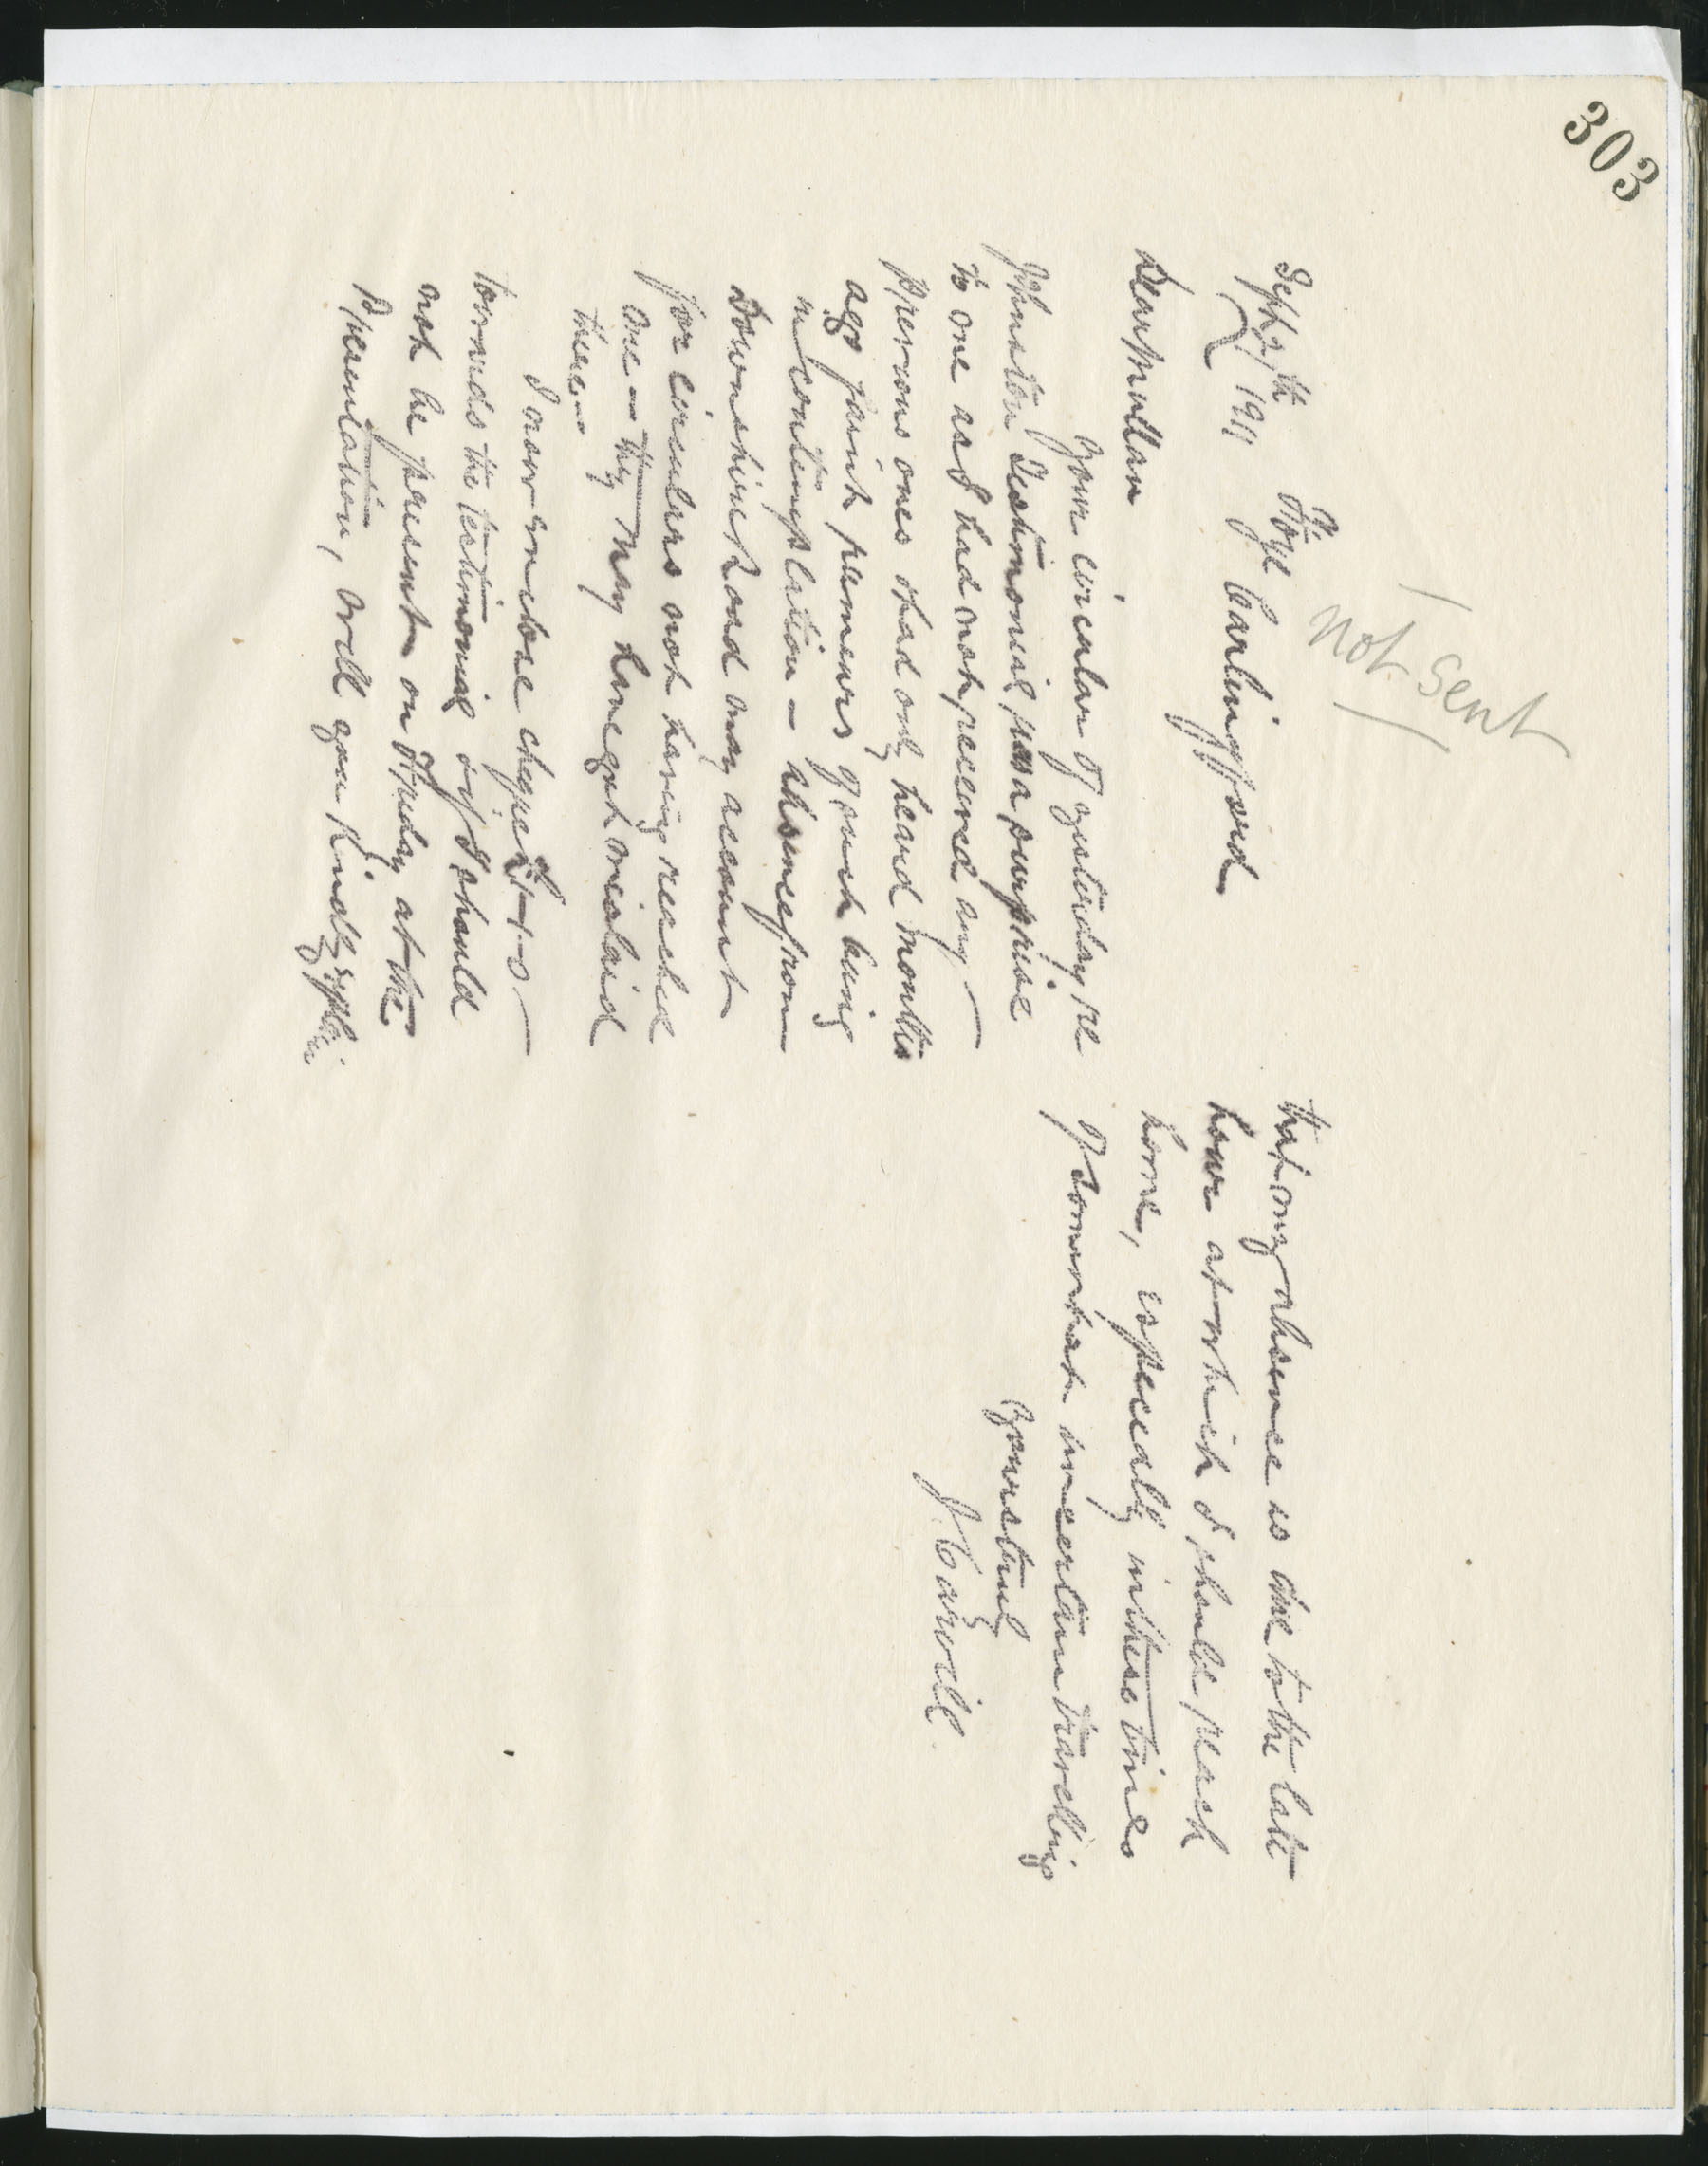 303
not sent
Sept 27th 1911
Carlingford
Dear Mullan
Your circular of yesterday re
Johnston Testimonial was a surprise
to me as I had not received any
previous ones & had only heard months
ago faint rumours of such being
in contemplation – absence from
Downshire Road may account
for circulars not having reached
me – they may have got mislaid
there –
I now enclose cheque £1-1-0 –
towards the testimonial if I should
not be present on Friday at the
presentation, will you kindly explain
that my absence is due to the late
hour at which I should reach
home, especially in these times
of somewhat uncertain travelling
Yours truly
J Carvill